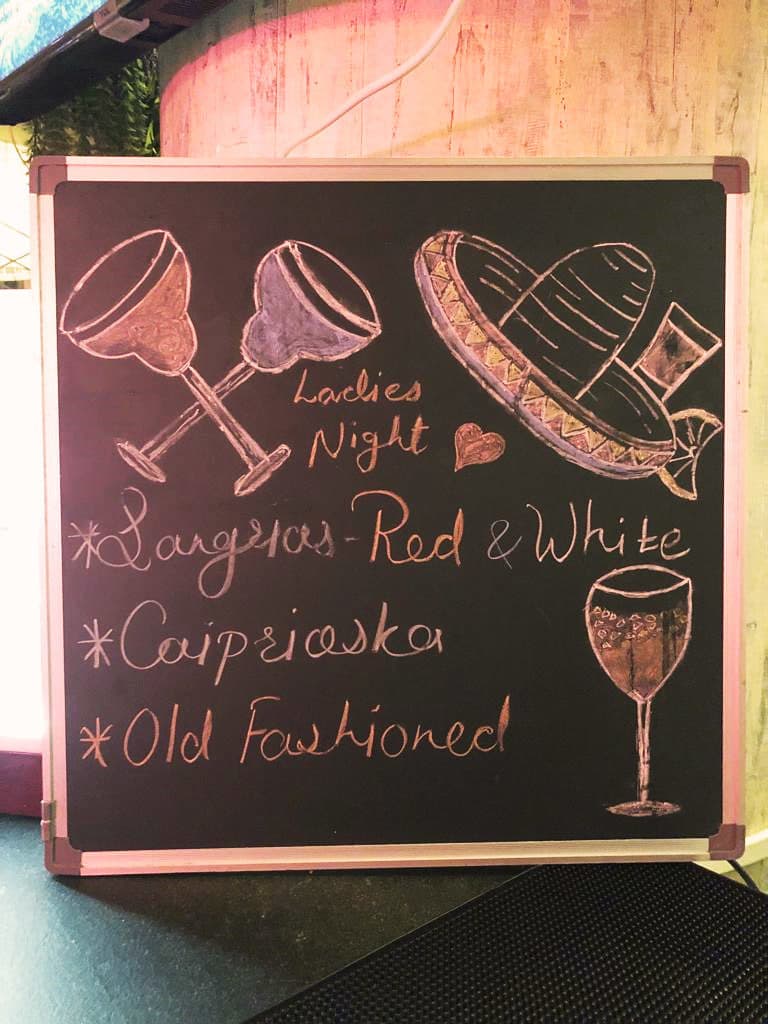 Ladies
Night
*Sangrias-Red & White
*Caiprioska
*Old Fashioned